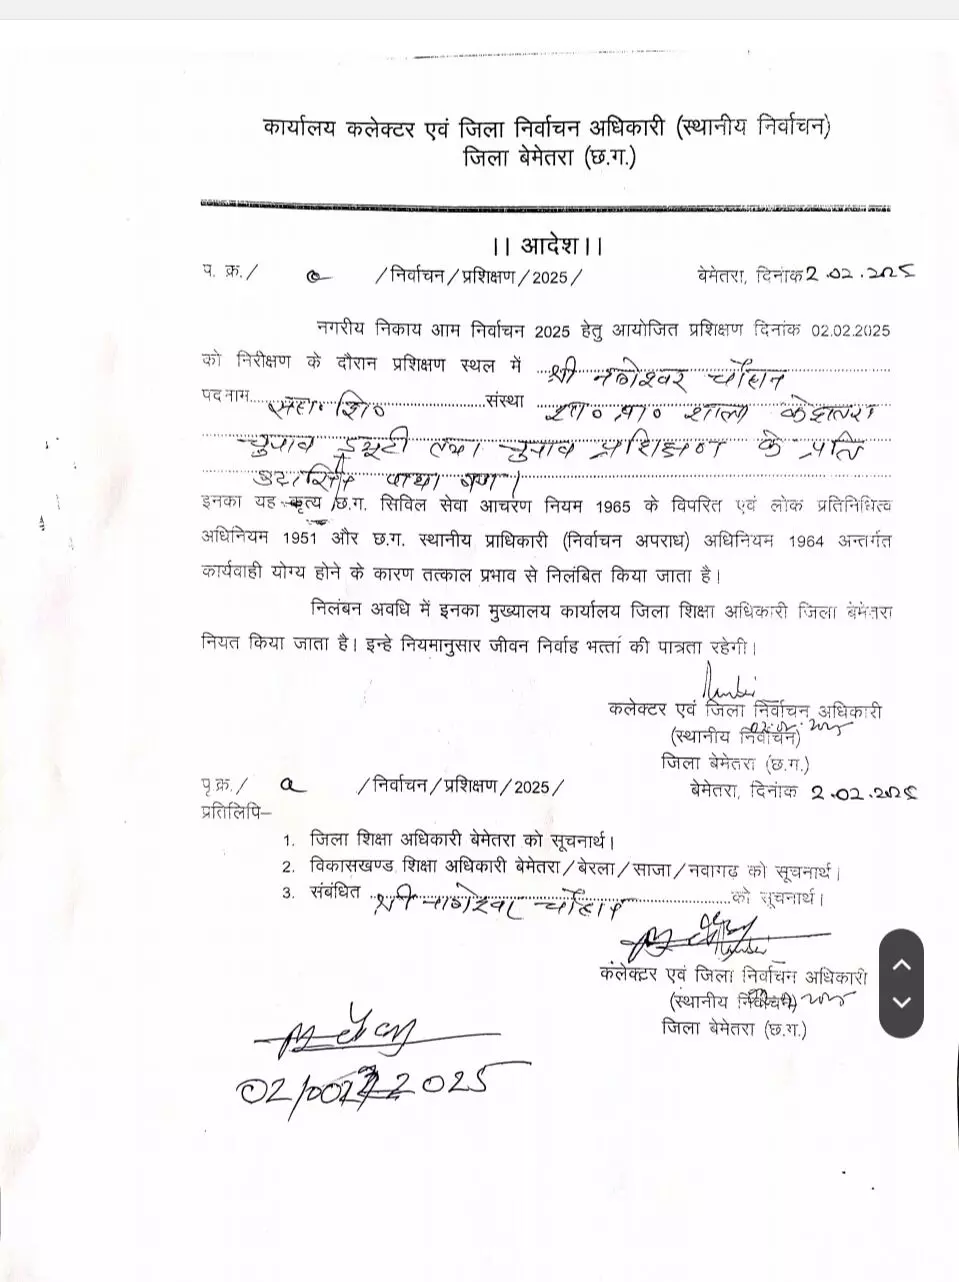 कार्यालय कलेक्टर एवं जिला निर्वाचन अधिकारी (स्थानीय निर्वाचन)
जिला बेमेतरा (छ.ग.)
।। आदेश।।
प. क्र./ /निर्वाचन/प्रशिक्षण/2025/ बेमेतरा, दिनांक 2.02.2025
नगरीय निकाय आम निर्वाचन 2025 हेतु आयोजित प्रशिक्षण दिनांक 02.02.2025
को निरीक्षण के दौरान प्रशिक्षण स्थल में श्री नागेश्वर चौहान
पदनाम सहा. शि० संस्था शा० प्रा० शाला
चुनाव ड्यूटी तथा चुनाव प्रशिक्षण के प्रति
पाया गया।
इनका यह कृत्य छ.ग. सिविल सेवा आचरण नियम 1965 के विपरित एवं लोक प्रतिनिधित्व
अधिनियम 1951 और छ.ग. स्थानीय प्राधिकारी (निर्वाचन अपराध) अधिनियम 1964 अन्तर्गत
कार्यवाही योग्य होने के कारण तत्काल प्रभाव से निलंबित किया जाता है।
निलंबन अवधि में इनका मुख्यालय कार्यालय जिला शिक्षा अधिकारी जिला बेमेतरा
नियत किया जाता है। इन्हे नियमानुसार जीवन निर्वाह भत्तां की पात्रता रहेगी।
कलेक्टर एवं जिला निर्वाचन अधिकारी
(स्थानीय निर्वाचन)
जिला बेमेतरा (छ.ग.)
पृ.क्र./ /निर्वाचन/प्रशिक्षण/2025/ बेमेतरा, दिनांक 2.02.2025
प्रतिलिपि–
1. जिला शिक्षा अधिकारी बेमेतरा को सूचनार्थ।
2. विकासखण्ड शिक्षा अधिकारी बेमेतरा/बेरला/साजा/नवागढ़ को सूचनार्थ।
3. संबंधित श्री नागेश्वर चौहान को सूचनार्थ।
कलेक्टर एवं जिला निर्वाचन अधिकारी
(स्थानीय निर्वाचन)
जिला बेमेतरा (छ.ग.)